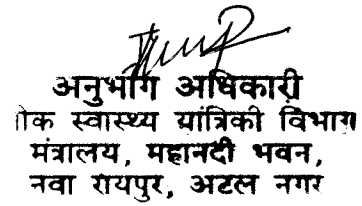 अनुभाग अधिकारी
ोक स्वास्थ्य यांत्रिकी विभाग
मंत्रालय, महानदी भवन,
नवा रायपुर, अटल नगर